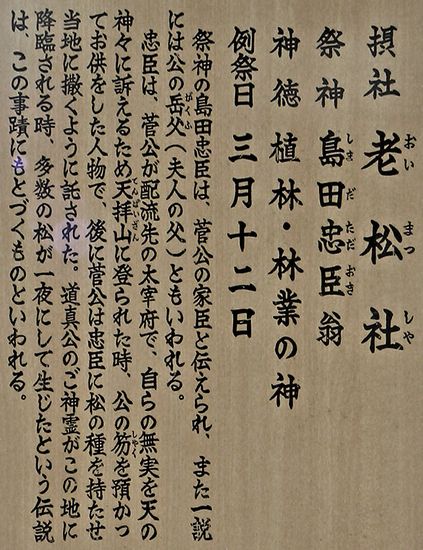 摂社 老松社
おいまつしゃ
祭神 島田忠臣翁
しまだただおさ
神徳 植林・林業の神
例祭日 三月十二日
祭神の島田忠臣は、菅公の家臣と伝えられ、また一説
には公の岳父(夫人の父)ともいわれる。
がくふ
忠臣は、菅公が配流先の太宰府で、自らの無実を天の
神々に訴えるため天拝山に登られた時、公の笏を預かっ
てんぱいざん
しゃく
てお供をした人物で、後に菅公は忠臣に松の種を持たせ
当地に撒くように託された。道真公のご神霊がこの地に
降臨される時、多数の松が一夜にして生じたという伝説
は、この事蹟にもとづくものといわれる。